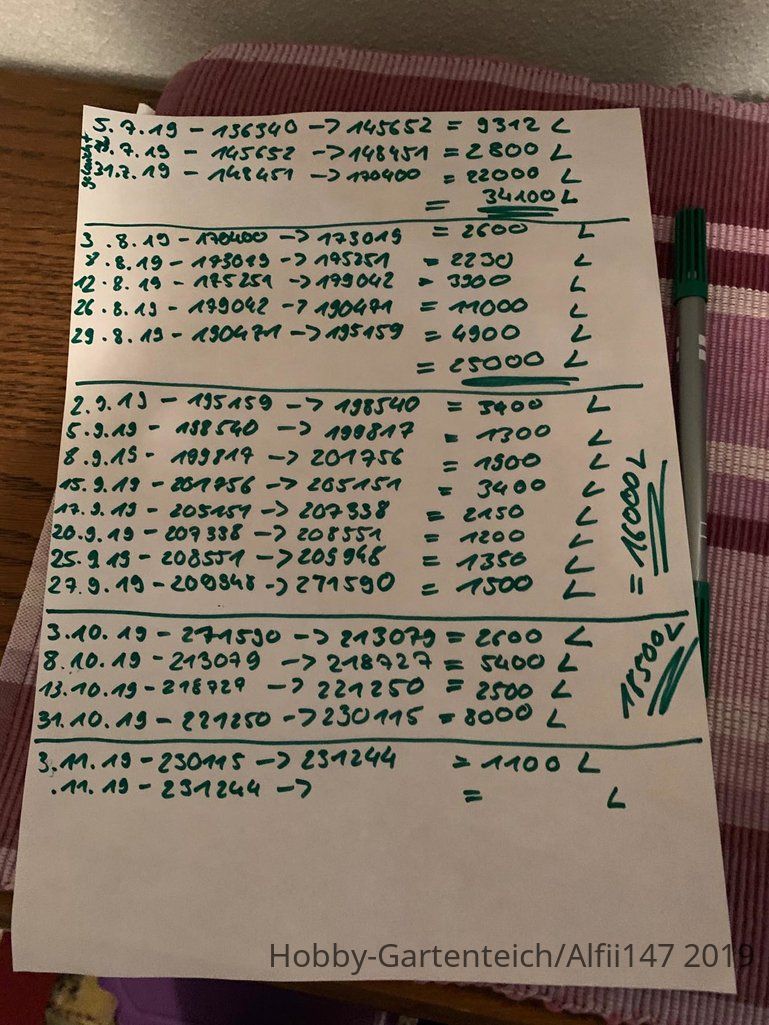 5.7.19 - 136340 -> 145652 = 9312 L
.7.19 - 145652 -> 148451 = 2800 L
31.7.19 - 148451 -> 170400 = 22000 L
= 34100 L
3.8.19 - 170400 -> 173019 = 2600 L
8.8.19 - 173019 -> 175251 = 2230 L
12.8.19 - 175251 -> 179042 = 3900 L
26.8.19 - 179042 -> 190471 = 11000 L
29.8.19 - 190471 -> 195159 = 4900 L
= 25000 L
2.9.19 - 195159 -> 198540 = 3400 L
5.9.19 - 198540 -> 199817 = 1300 L
8.9.19 - 199817 -> 201756 = 1900 L
15.9.19 - 201756 -> 205151 = 3400 L
17.9.19 - 205151 -> 207338 = 2150 L
20.9.19 - 207338 -> 208551 = 1200 L
25.9.19 - 208551 -> 209948 = 1350 L
27.9.19 - 209948 -> 271590 = 1500 L
= 16000 L
3.10.19 - 271590 -> 213079 = 2600 L
8.10.19 - 213079 -> 218727 = 5400 L
13.10.19 - 218729 -> 221250 = 2500 L
31.10.19 - 221250 -> 230115 = 8000 L
18500 L
3.11.19 - 230115 -> 231244 = 1100 L
.11.19 - 231244 -> = L
Hobby-Gartenteich/Alfii147 2019